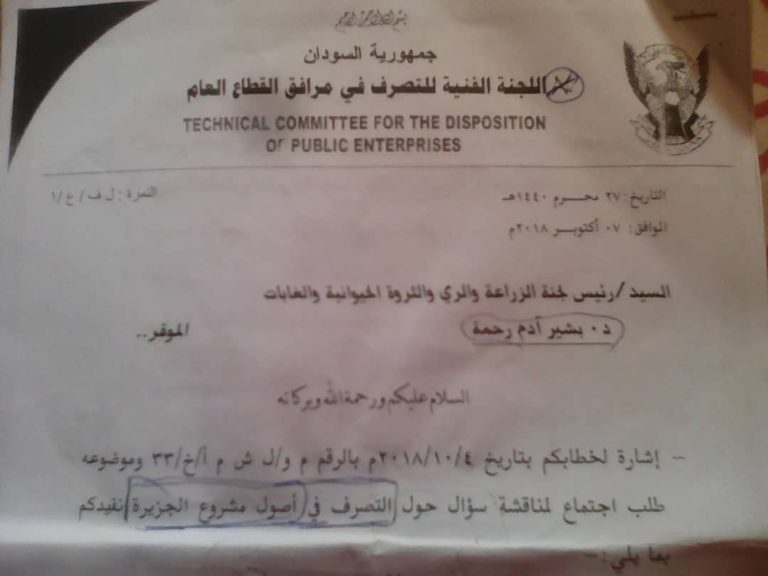 بسم الله الرحمن الرحيم
جمهورية السودان
اللجنة الفنية للتصرف في مرافق القطاع العام
TECHNICAL COMMITTEE FOR THE DISPOSITION
OF PUBLIC ENTERPRISES
التاريخ: ٢٧ محـــرم ١٤٤٠هـ
النمرة: ل ف/ ع /١
الموافق: ٠٧ أكتوبــر ٢٠١٨م
السيد/رئيس لجنة الزراعة والري والثروة الحيوانية والغابات
د٠ بشير آدم رحمة
الموقر..
السلام عليكم ورحمة الله وبركاته
- إشارة لخطابكم بتاريخ ٢٠١٨/١٠/٤م بالرقم م و/ل ش م أ/خ/٣٣ وموضوعه
طلب اجتماع لمناقشة سؤال حول التصرف في أصول مشروع الجزيرة نفيدكم
بما يلي:-